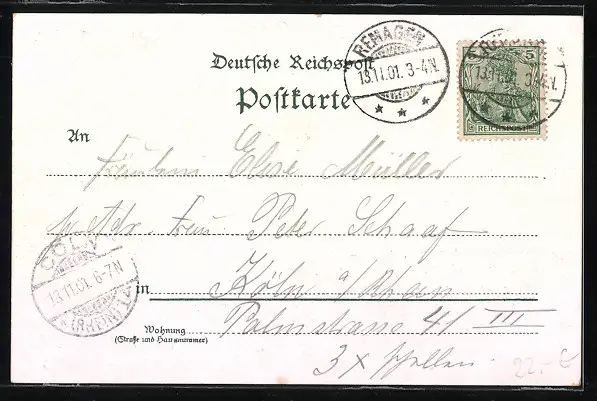 REMAGEN
13.11.01. 3-4N.
REMAGEN
13.11.01. 3-4N.
5 5
REICHSPOST
Deutsche Reichspost
Postkarte
An
Fräulein Elise Müller
p. Adr. Frau Peter Schaaf
CÖLN
13.11.01. 6-7N
(RHEIN)
in Köln a/Rhein
Wohnung
(Straße und Hausnummer)
Palmstrasse 41 III
3 x schellen.
22.- €